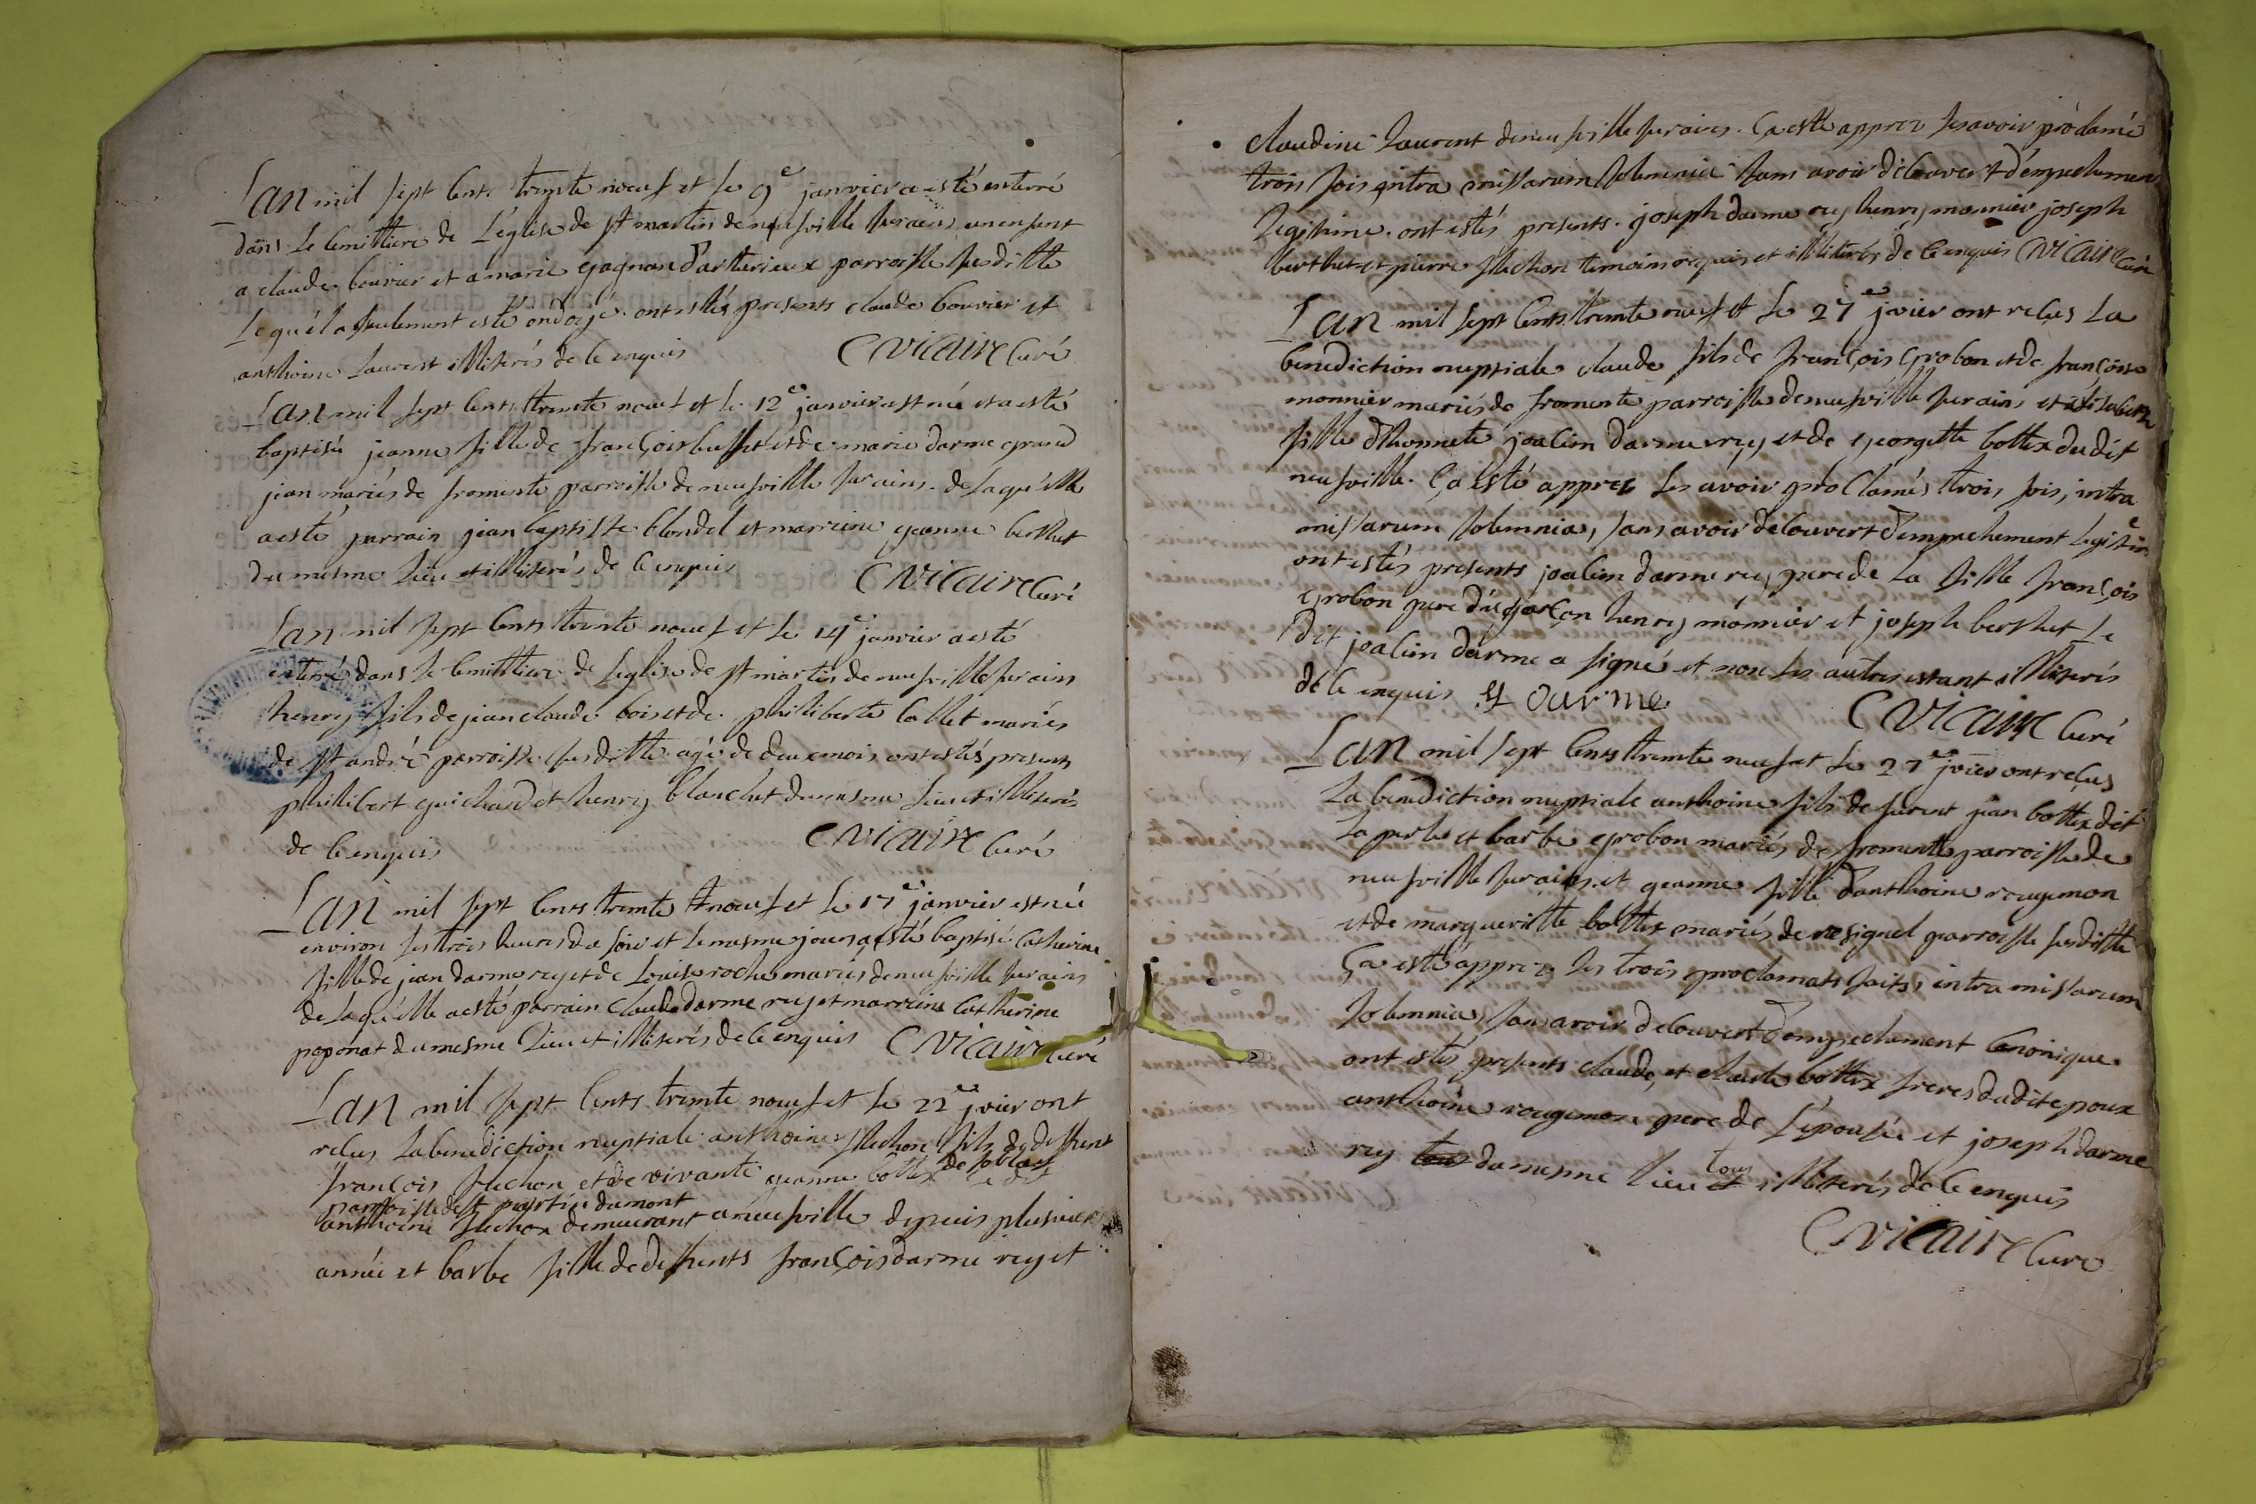 Lan mil sept cents trente noeuf et le 9e janvier a esté enterré
dans le cemittiere de L'église de st martin de neufville sur ains un enfant
a claude bouvier et a marie gagnon d'artterieux parroisse susditte
Lequél a seulement esté ondoyé. ont estés presents claude bouvier et
anthoine Laurent illiterés de ce enquis Cvicaire Curé
Lan mil sept cents trente noeuf et le 12e janvier est née et a esté
baptisée jeanne fille de françois buffet et de marie darme grand
jean mariés de fromente parroisse de neufville sur ains. de laquélle
a esté parrain jean baptiste blondel et marreine jeanne berthet
du mesme lieu et illiterés de ce enquis Cvicaire Curé
Lan mil sept cents trente noeuf et le 14e janvier a esté
enterré dans le cemittiere de l'eglise de st martin de neufville sur ains
henry fils de jean claude bois et de philiberte Collet mariés
de st andré parroisse susditte agé de deux mois ont estés presents
philibert guichard et henry blanchet du mesme lieu et illiterés
de ce enquis Cvicaire Curé
Lan mil sept cents trente noeuf et le 17e janvier est née
environ les trois heures du soir et le mesme jour a esté baptisé Catherine
fille de jean darme rey et de Louise roche mariés de neufville sur ains
de laquélle a esté parrain claude darme rey et marreine Catherine
poponat du mesme lieu et illiterés de ce enquis Cvicaire Curé
Lan mil sept cents trente noeuf et le 22e jvier ont
reçus La benediction nuptiale anthoine flechon fils de deffunt
françois flechon et de vivante jeanne bottex de
parroisse de st martin du mont le dit
anthoine flechon demeurant a neufville depuis plusieurs
année et barbe fille de deffunts françois darme rey et
claudine Laurent de neufville sur ains. Ça esté apprez les avoir proclamé
trois fois intra missarum solemnia sans avoir découvert d'empechement
legitime. ont estés presents. joseph darme rey henry monnier joseph
berthet et pierre flechon temoins requis et illiterés de ce enquis Cvicaire Curé
Lan mil sept cents trente neuf et le 27e jvier ont reçus La
benediction nuptiale claude fils de françois grobon et de françoise
monnier mariés de fromente parroisse de neufville sur ains et élisabeth
fille d'honnete joacim darme rey et de georgette bottex du dit
neufville. Ça esté apprez les avoir proclamés trois fois, intra
missarum solemnia, sans avoir découvert d'empechement legitime
ont estés presents joacim darme rey pere de La fille françois
grobon pere du garçon henry monnier et joseph berthet Le
dit joacim darme a signé et non les autres estant illiterés
de ce enquis J darme Cvicaire Curé
Lan mil sept cents trente neuf et le 27e jvier ont reçus
La benediction nuptiale anthoine fils de furent jean bottex dit
La perle et barbe grobon mariés de fromente parroisse de
neufville sur ains, et jeanne fille d'anthoine rougemon
et de margueritte bottex mariés de resignel parroisse susditte
Ça esté apprez les trois proclamats faits, intra missarum
solemnia, sans avoir découvert d'empechement Canonique.
ont estés presents claude, et claude bottex freres du dit epoux
anthoine rougemon pere de L'épousée et joseph darme
rey du mesme lieu et tous illiterés de ce enquis
Cvicaire Curé